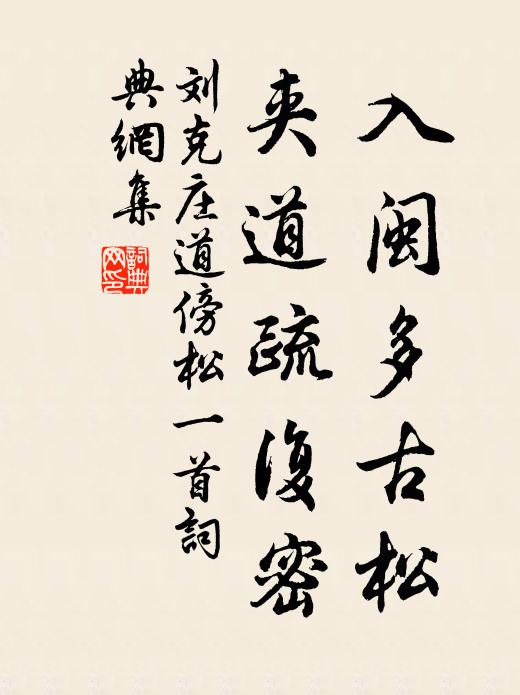 入闽多古松
夹道疏復密
刘克庄道傍松一首詞
典網集
詞典
网印